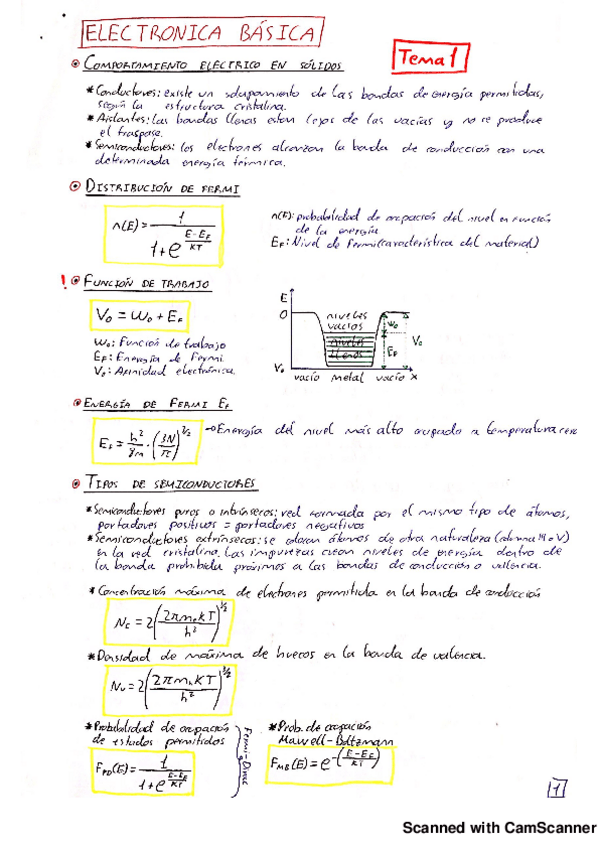 ELECTRONICA BÁSICA
Tema 1
COMPORTAMIENTO ELÉCTRICO EN SÓLIDOS
*Conductores: existe un solapamiento de las bandas de energía permitidas,
según la estructura cristalina.
*Aislantes: las bandas llenas estan lejos de las vacías y no se produce
el traspase.
*Semiconductores: los electrones alcanzan la banda de conducción con una
determinada energía térmica.
DISTRIBUCIÓN DE FERMI
n(E) = 1 / (1+e^((E-E_F)/KT))
n(E): probabilidad de ocupación del nivel en función
de la energía
E_F: Nivel de Fermi (característica del material)
! FUNCIÓN DE TRABAJO
V₀ = W₀ + E_F
W₀: Función de trabajo
E_F: Energía de Fermi
V₀: Afinidad electrónica
E
0
niveles
vacíos
niveles
llenos
W₀
E_F
V₀
V₀
vacío metal vacío x
ENERGÍA DE FERMI E_F
E_F = h²/8m · (3N/π)^(2/3)
→Energía del nivel más alto ocupado a temperatura cer
TIPOS DE SEMICONDUCTORES
*Semiconductores puros o intrínsecos: red formada por el mismo tipo de átomos,
portadores positivos = portadores negativos
*Semiconductores extrínsecos: se colocan átomos de otra naturaleza (columna III o V)
en la red cristalina. Las impurezas crean niveles de energía dentro de
la banda prohibida próximos a las bandas de conducción o valencia.
*Concentración máxima de electrones permitida en la banda de conducción
N_C = 2(2πm_eKT/h²)^(3/2)
*Densidad de máxima de huecos en la banda de valencia.
N_V = 2(2πm_hKT/h²)^(3/2)
*Probabilidad de ocupación
de estados permitidos
F_FD(E) = 1 / (1+e^((E-E_F)/KT))
Fermi-Dirac
*Prob. de ocupación
Maxwell-Boltzmann
F_MB(E) = e^-((E-E_F)/KT)
1
Scanned with CamScanner